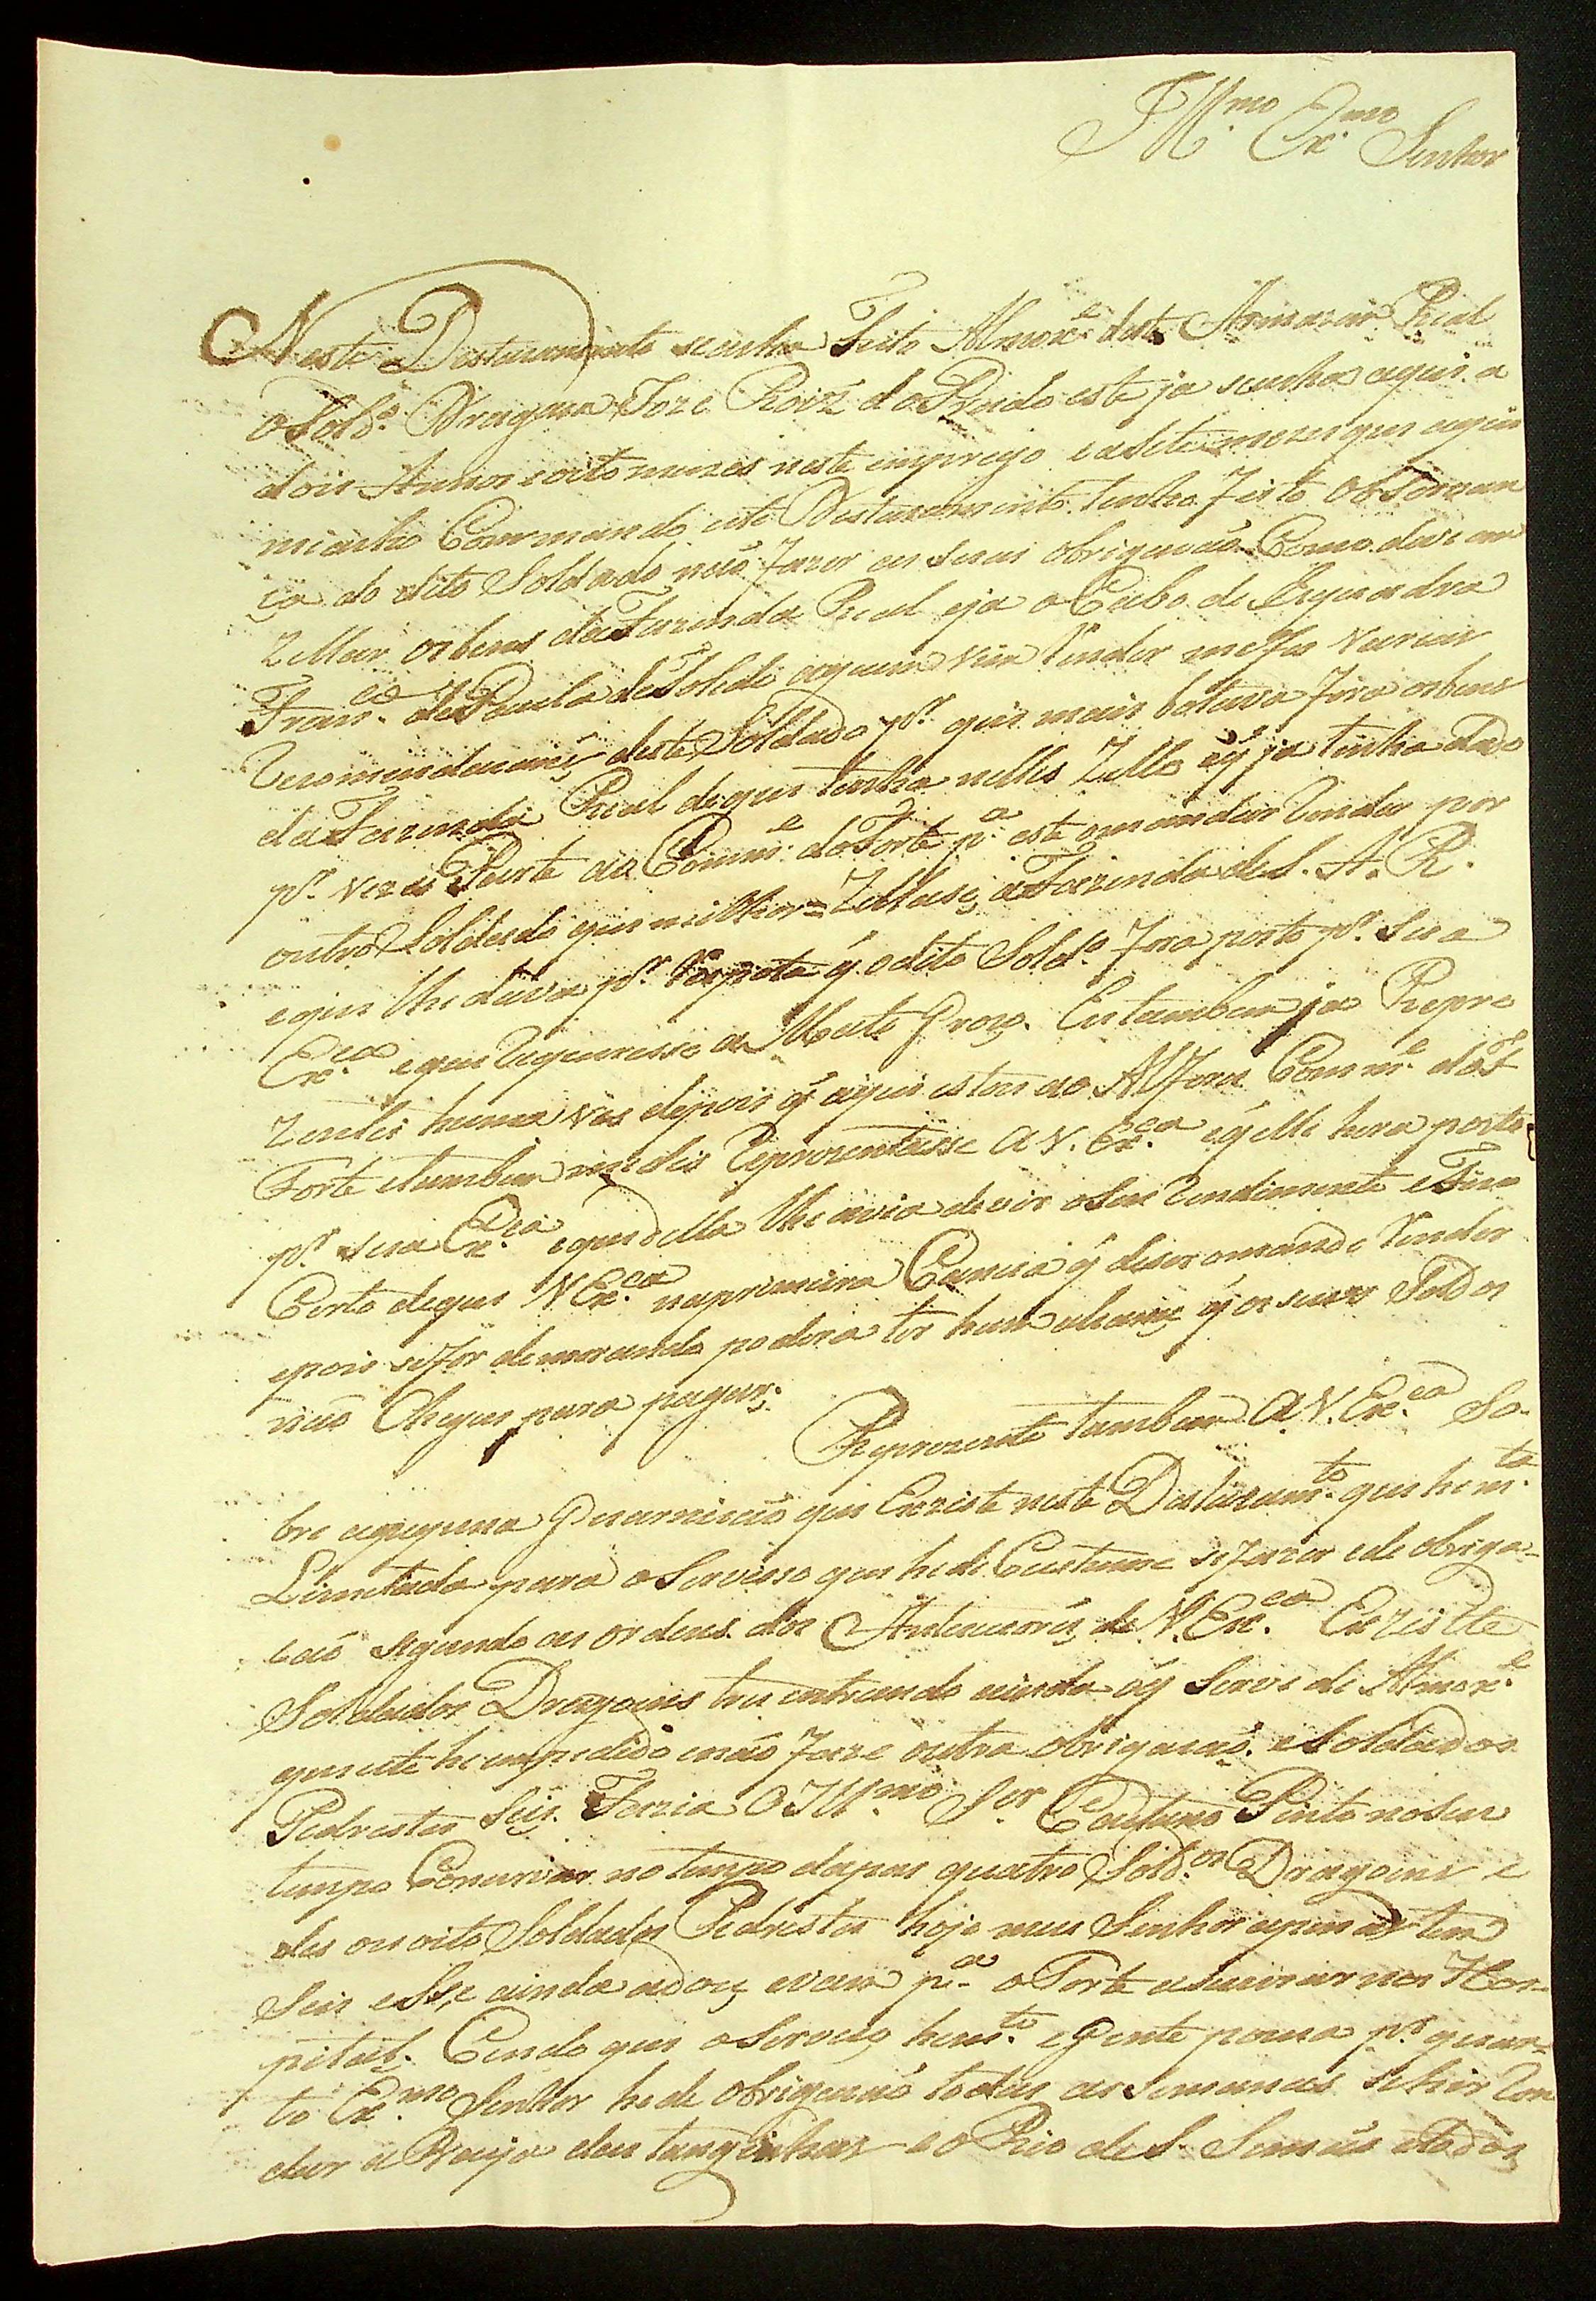 Ill.mo Ex.mo Senhor
Neste Destacamento seacha Feito Almox.e deste Armazam Rial
o Sold.o Dragam Joze Roiz do Prado este ja seacha aqui a
dois Annos e oito mezes neste emprego e a sete mezes que aqui
me acho Commandado este Destacamento tenho Feito observan
ça do dito Soldado não Fazer as suas obrigacois Como deve em
Zellar os bens da Fazenda Real e ja o Cabo de Esquadra
Fran.co de Paula de Toledo aquem vim Render me fes varias
Recomendacois deste Soldado p.r que mais botava Fora os bens
da Fazenda Rial do que tinha nelles Zello e q̃ ja tinha Dado
p.r vezes Parte ao Comm.e do Forte p.a este mandar Render por
outro Soldado que milhor Zellase a Fazenda de S. A. R.
e que lhe dava p.r Resposta q̃ o dito Sold.o Fora posto p.r Sua
Ex.ca e que Requeresse a Mato Groso. Eu tambem ja Repre
zentei huma ves depois q̃ aqui estou ao Alferes Comm.e do F
Forte e tambem me dis Reprezentasse a V. Ex.ca e q̃ elle hera posto
p.r sua Ex.ca e que della lhe avia de vir o seu Rendimento e Fico
Certo de que V. Ex.ca na primeira Canoa q̃ deser o mande Render
e pois se for demorando podera ter hum alcanse q̃ os seus Soldos
não Chegue para pagar.
Reprezento tambem a V. Ex.ca So-
bre a pequena Guarnicão que Exziste neste Destacam.to que he m.to
Limitada para o Servisso que he de Custume se fazer e de obriga-
cão segundo as ordens dos Antecesores de V. Ex.ca Exziste
Soldados Dragoins tres entrando ainda o q̃ Serve de Almox.e
que este he empedido e não Faze outra obrigacão. e Soldados
Pedrestes Seis. Fazia o Ill.mo S.or Caetano Pinto no seu
tempo Conservar no tempo da pas quatro Sold.os Dragoins e
des ou oito Soldados Pedrestes hoje meu Senhor apenas tem
Seis e Esse ainda adoese e vam p.a o Forte a Curar nos Hos-
pital. Cendo que o Serviso he m.to e Gente pouca p.r quan-
to Ex.mo Senhor he de obrigacão todas as semanas se hir Ron
dar a Vargem das tanginhas e o Rio de S. Simão e todos